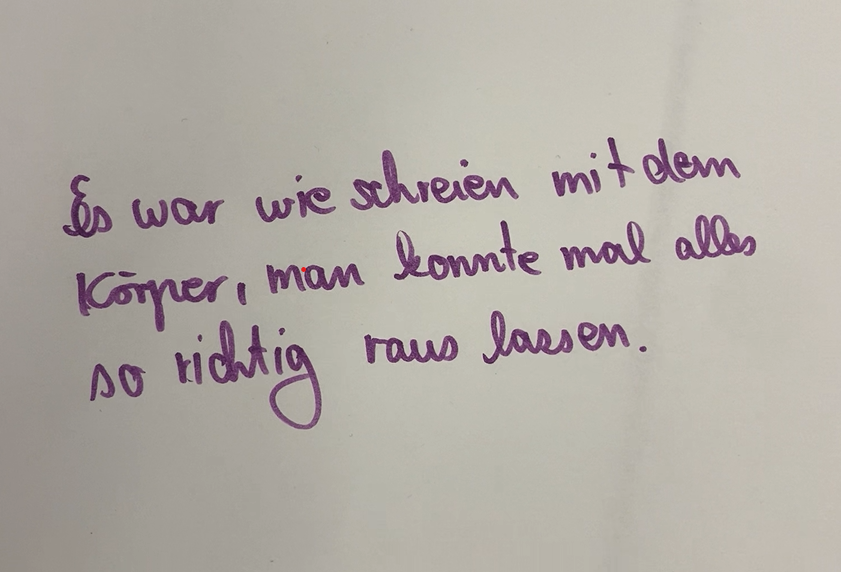 Es war wie schreien mit dem
Körper, man konnte mal alles
so richtig raus lassen.